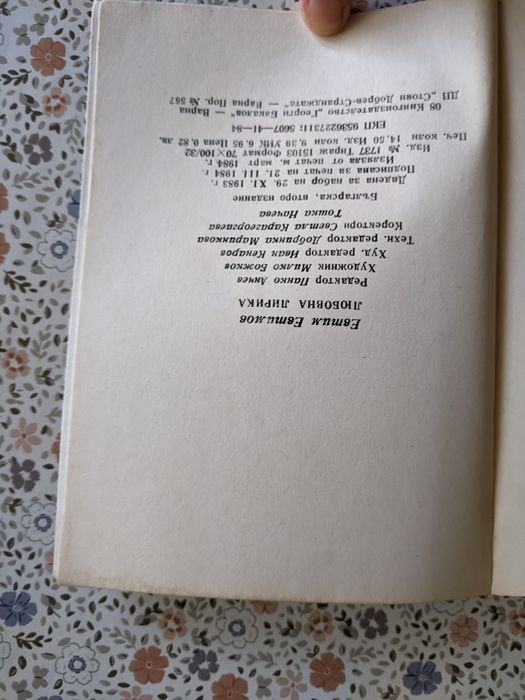 Евтим Евтимов
ЛЮБОВНА ЛИРИКА
Редактор Панко Анчев
Художник Милко Божков
Худ. редактор Иван Кенаров
Техн. редактор Добринка Маринкова
Коректори Светла Карагеоргиева
Тошка Начева
Българска, второ издание
Дадена за набор на 29. XI. 1983 г.
Подписана за печат на 21. III. 1984 г.
Излязла от печат м. март 1984 г.
Изд. № 1737 Тираж 15103 формат 70×100/32
Печ. коли 14,50 Изд. коли 9,39 УИК 6,95 Цена 0,82 лв.
ЕКП 95362272311; 5607—41—84
08 Книгоиздателство „Георги Бакалов“ — Варна
ДП „Стоян Добрев-Странджата“ — Варна Пор. № 567